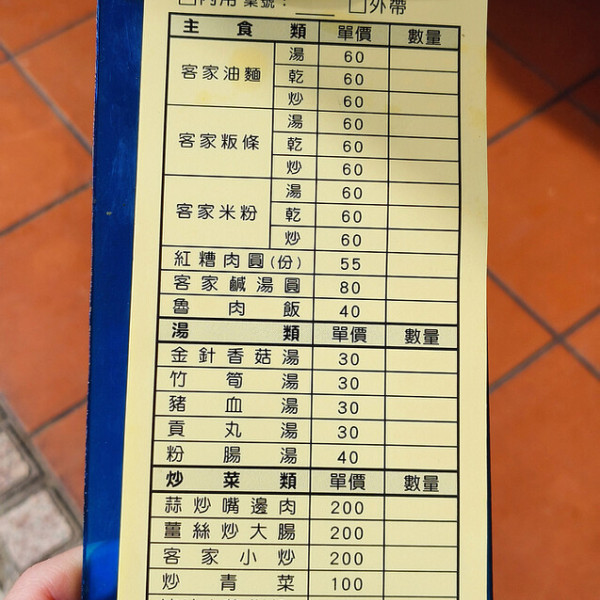 □內用 桌號：____ □外帶
主食類 單價 數量
客家油麵 湯 60
乾 60
炒 60
客家粄條 湯 60
乾 60
炒 60
客家米粉 湯 60
乾 60
炒 60
紅糟肉圓(份) 55
客家鹹湯圓 80
魯肉飯 40
湯類 單價 數量
金針香菇湯 30
竹筍湯 30
豬血湯 30
貢丸湯 30
粉腸湯 40
炒菜類 單價 數量
蒜炒嘴邊肉 200
薑絲炒大腸 200
客家小炒 200
炒青菜 100